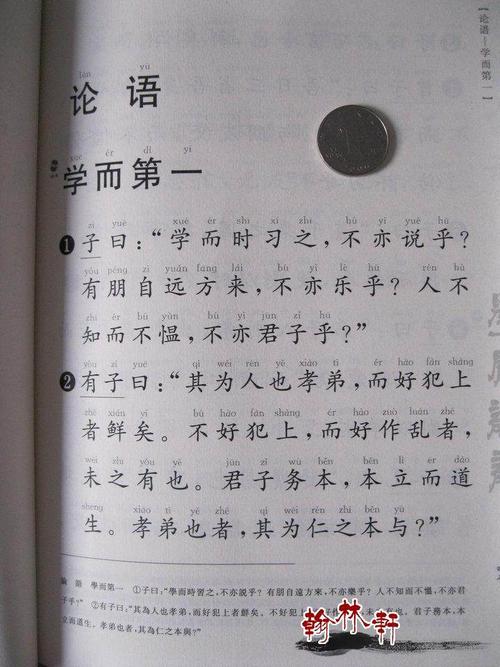 【论语—学而第一】
lún yǔ
论语
xué ér dì yī
学而第一
zǐ yuē xué ér shí xí zhī bù yì yuè hū
❶子曰：“学而时习之，不亦说乎？
yǒu péng zì yuǎn fāng lái bù yì lè hū rén bù
有朋自远方来，不亦乐乎？人不
zhī ér bù yùn bù yì jūn zǐ hū
知而不愠，不亦君子乎？”
yǒu zǐ yuē qí wéi rén yě xiào tì ér hào fàn shàng
❷有子曰：“其为人也孝弟，而好犯上
zhě xiǎn yǐ bú hào fàn shàng ér hào zuò luàn zhě
者鲜矣。不好犯上，而好作乱者，
wèi zhī yǒu yě jūn zǐ wù běn běn lì ér dào
未之有也。君子务本，本立而道
shēng xiào tì yě zhě qí wéi rén zhī běn yú
生。孝弟也者，其为仁之本与？”
論語 學而第一 ①子曰：“學而時習之，不亦説乎？有朋自遠方來，不亦樂乎？人不知而不愠，不亦君
子乎？” ②有子曰：“其為人也孝弟，而好犯上者鮮矣。不好犯上，而好作亂者，未之有也。君子務本，本
立而道生。孝弟也者，其為仁之本與？”
翰林軒